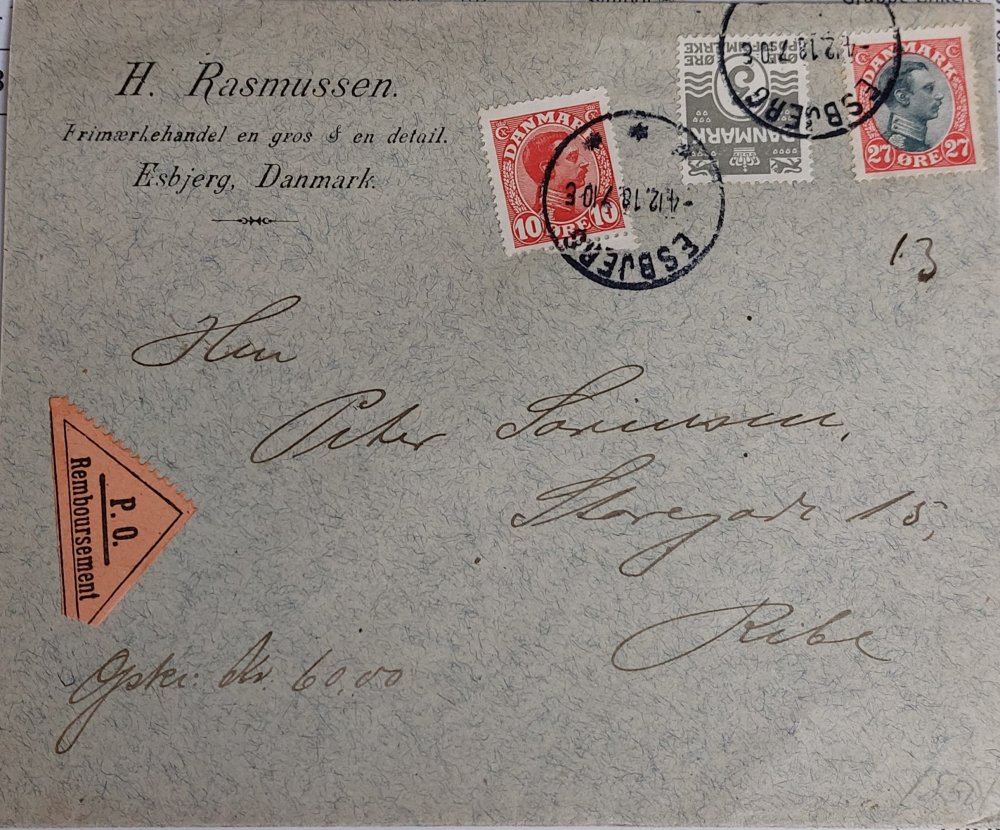 H. Rasmussen.
Frimærkehandel en gros & en detail.
Esbjerg, Danmark.
DANMARK
10 ØRE 10
ESBJERG
-4.12.18. 7-10 E
DANMARK
ESBJERG
-4.12.18. 7-10 E
DANMARK
27 ØRE 27
13
Herr
Peter Sørensen,
Storegade 15,
Ribe
P. O.
Remboursement
Opkr: Kr. 60,00